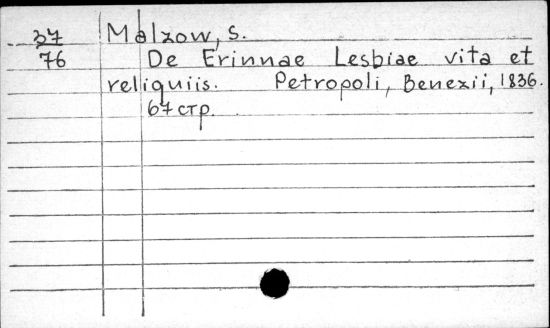 37 Malzow, S.
76 De Erinnae Lesbiae vita et
reliquiis. Petropoli, Benezii, 1836.
67 стр.